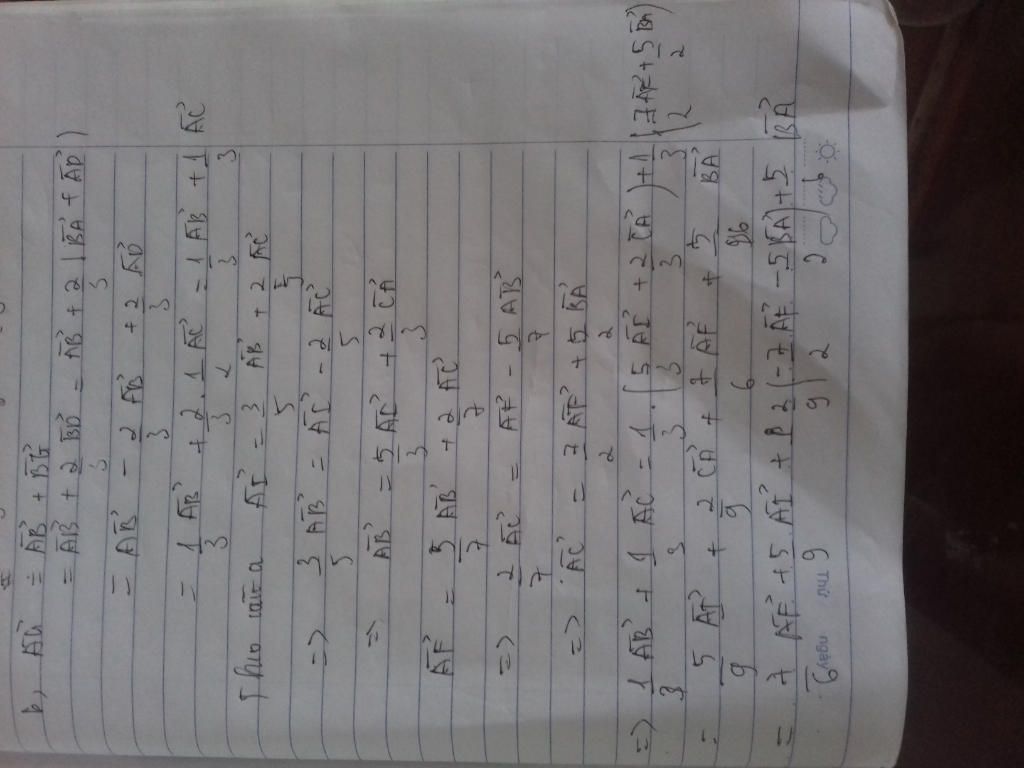 b) AG = AB + BG
= AB + 2/3 BD = AB + 2/3 (BA + AD)
= AB - 2/3 AB + 2/3 AD
= 1/3 AB + 2/3 . 1/2 AC = 1/3 AB + 1/3 AC
Theo câu a AI = 3/5 AB + 2/5 AC
=> 3/5 AB = AI - 2/5 AC
=> AB = 5/3 AI + 2/3 CA
AF = 5/7 AB + 2/7 AC
=> 2/7 AC = AF - 5/7 AB
=> AC = 7/2 AF + 5/2 BA
=> 1/3 AB + 1/3 AC = 1/3 . (5/3 AI + 2/3 CA) + 1/3 (7/2 AF + 5/2 BA)
= 5/9 AI + 2/9 CA + 7/6 AF + 5/6 BA
= 7/6 AF + 5/9 AI + 2/9 (-7/2 AF - 5/2 BA) + 5/6 BA